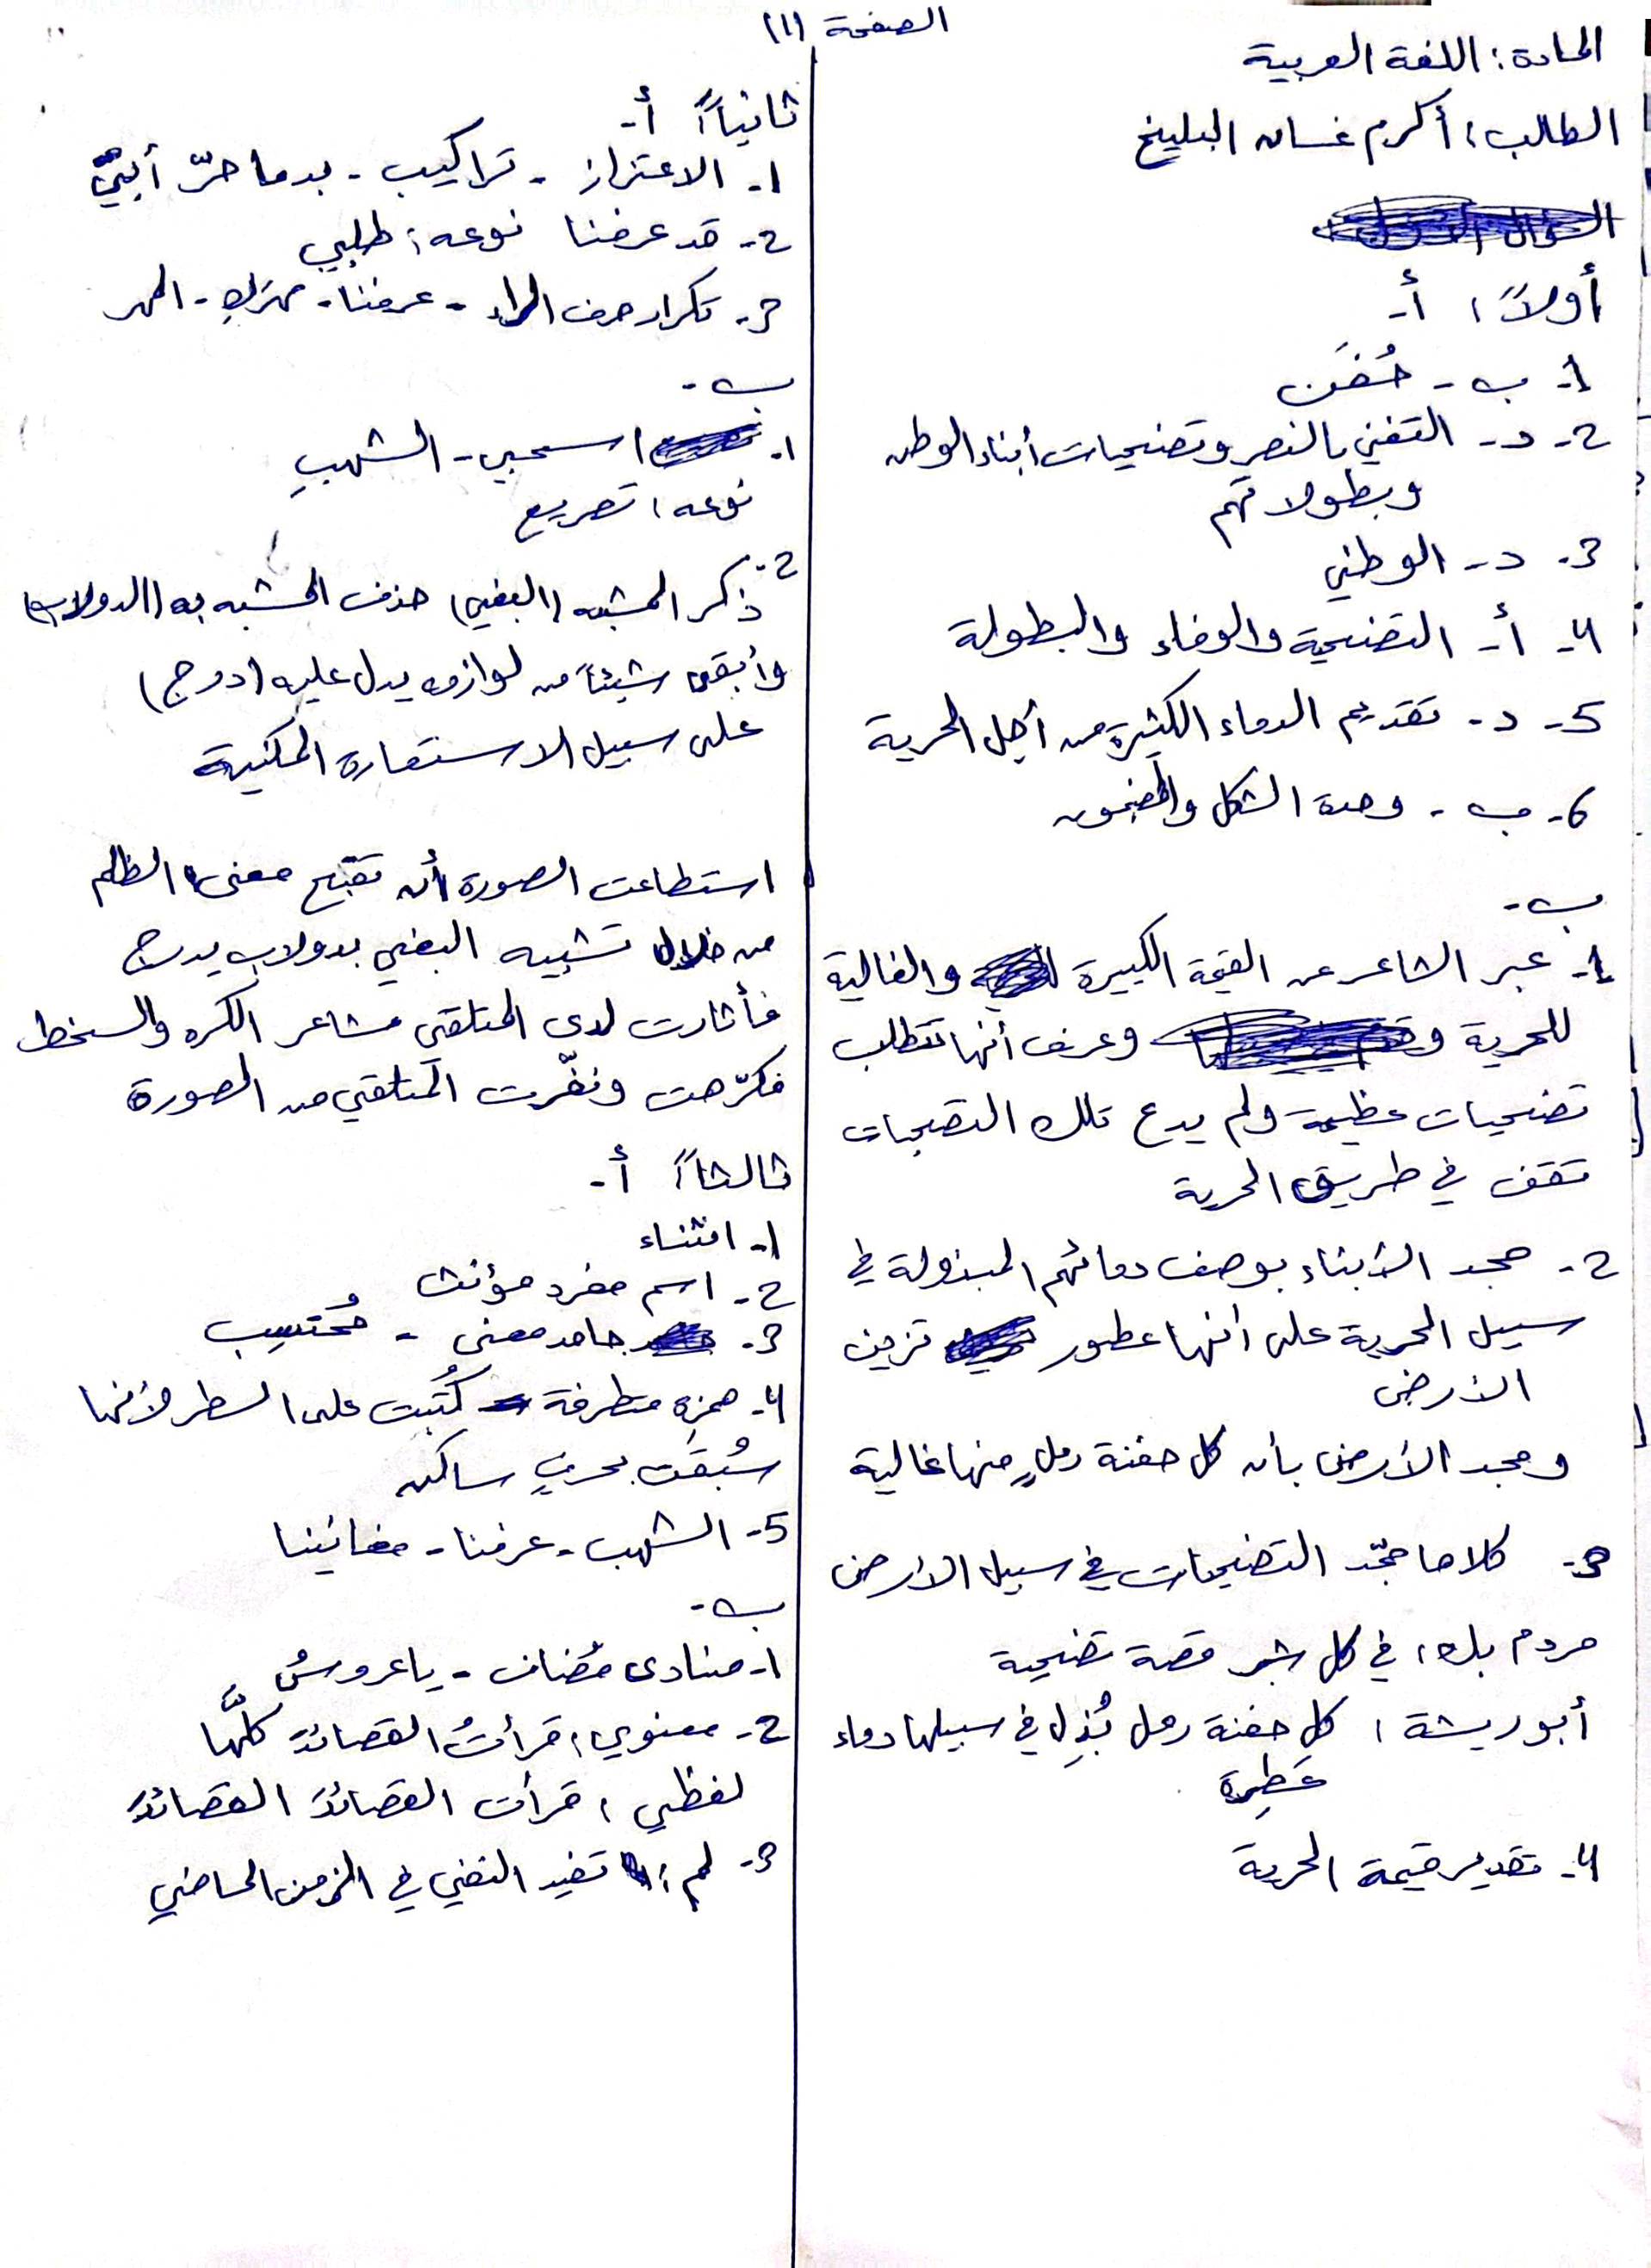 الصفحة (١)
المادة: اللغة العربية
الطالب: أكرم غسان البليخ
أولاً: أ-
1- ب - حُفَن
2- د- التغني بالنصر وتضحيات أبناء الوطن
وبطولاتهم
3- د- الوطني
4- أ- التضحية والوفاء والبطولة
5- د- تقديم الدماء الكثيرة من أجل الحرية
6- ب - وحدة الشكل والمضمون
ب-
1- عبر الشاعر عن القيمة الكبيرة والغالية
للحرية وعرف أنها تتطلب
تضحيات عظيمة ولم يدع تلك التضحيات
تقف في طريق الحرية
2- مجد الأبناء بوصف دمائهم المبذولة في
سبيل الحرية على أنها عطور تزين
الأرض
ومجد الأرض بأن كل حفنة رملٍ منها غالية
3- كلاهما مجّد التضحيات في سبيل الأرض
مردم بك: في كل شبر قصة تضحية
أبو ريشة: كل حفنة رمل بُذِل في سبيلها دماء
عَطِرة
4- تقدير قيمة الحرية
ثانياً: أ-
1- الاعتزاز - تراكيب - بدما حرّ أبيّ
2- قد عرفنا نوعه: طلبي
3- تكرار حرف الراء - عرفنا - مهركِ - المهر
ب-
1- اسحبي - الشهبِ
نوعه: تصريع
2- ذكر المشبه (البغي) حذف المشبه به (الدولاب)
وأبقى شيئاً من لوازمه يدل عليه (درج)
على سبيل الاستعارة المكنية
استطاعت الصورة أن تقبّح معنى الظلم
من خلال تشبيه البغي بدولاب يدرج
فأثارت لدى المتلقي مشاعر الكره والسخط
فكرّهت ونفّرت المتلقي من الصورة
ثالثاً: أ-
1- انثناء
2- اسم مفرد مؤنث
3- جامد معنى - مُحتسِب
4- همزة متطرفة كُتبت على السطر لأنها
سُبقت بحرفٍ ساكن
5- الشهب - عرفنا - مغانينا
ب-
1- منادى مُضاف - يا عروسُ
2- معنوي: قرأتُ القصائدَ كلَّها
لفظي: قرأت القصائدَ القصائدَ
3- لم: تفيد النفي في الزمن الماضي